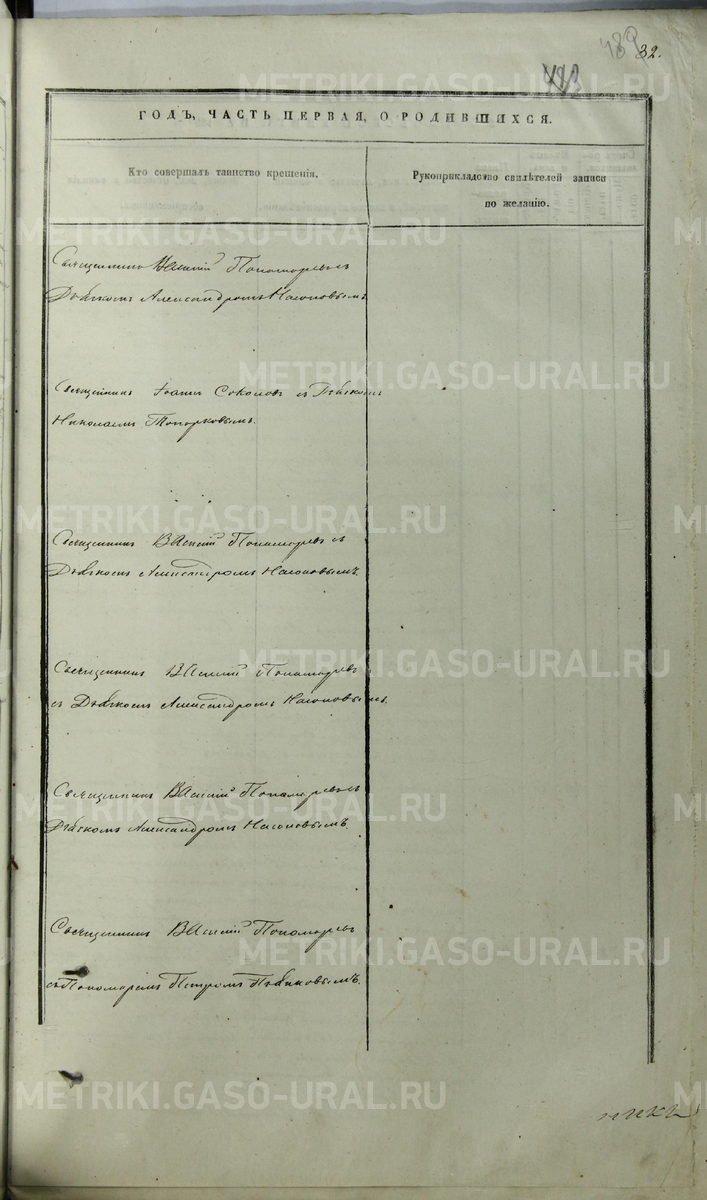 489
32.
METRIKI.GASO-URAL.RU
ГОДЪ, ЧАСТЬ ПЕРВАЯ, О РОДИВШИХСЯ.
Кто совершалъ таинство крещенія.
Рукоприкладство свидѣтелей записи
по желанію.
Священникъ Василій Пономаревъ съ
Дьячкомъ Александромъ Насоновымъ.
Священникъ Іоаннъ Соколовъ съ Дьячкомъ
Николаемъ Топорковымъ.
Священникъ Василій Пономаревъ съ
Дьячкомъ Александромъ Насоновымъ.
Священникъ Василій Пономаревъ
съ Дьячкомъ Александромъ Насоновымъ.
Священникъ Василій Пономаревъ съ
Дьячкомъ Александромъ Насоновымъ.
Священникъ Василій Пономаревъ
съ Пономаремъ Петромъ